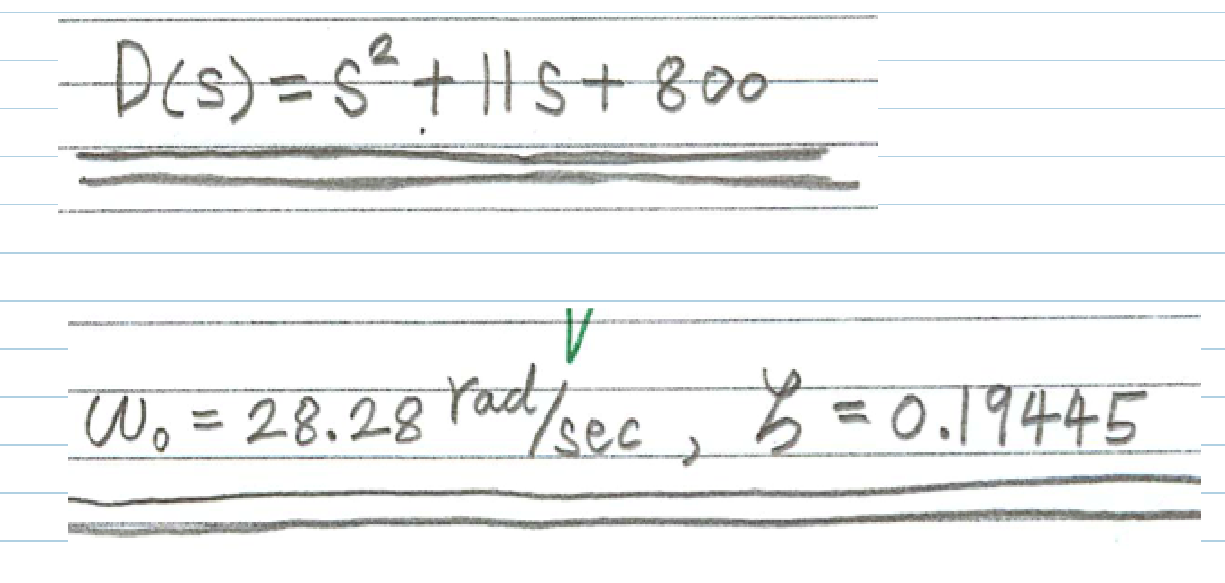 D(s) = s² + 11s + 800
ω₀ = 28.28 rad/sec , ζ = 0.19445